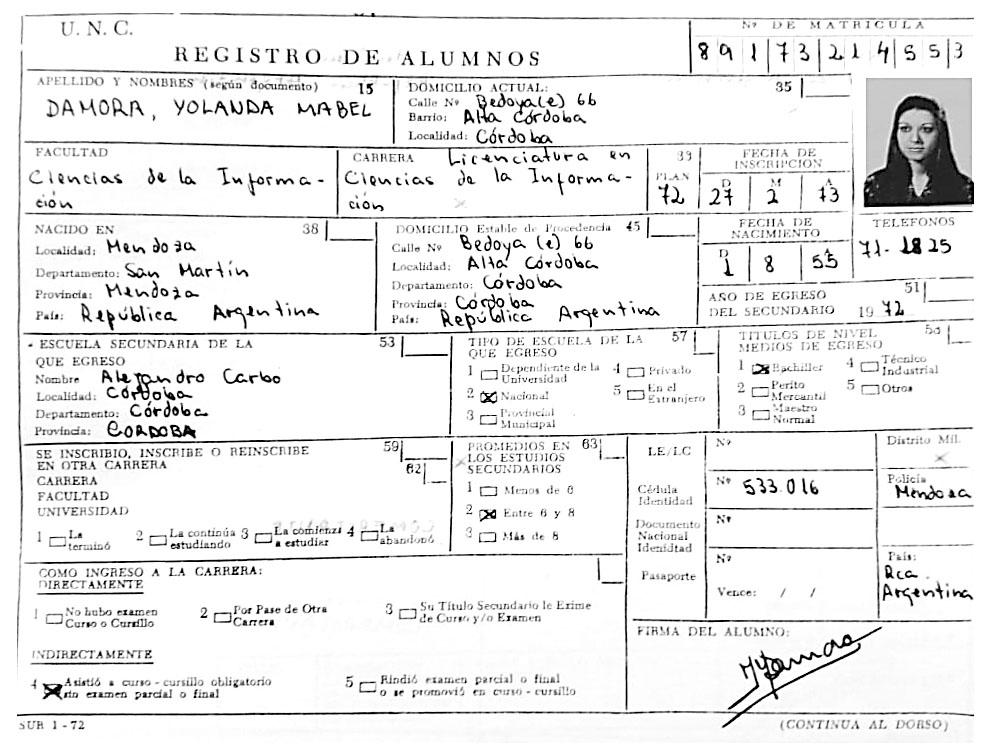 U. N. C.
REGISTRO DE ALUMNOS
Nº DE MATRICULA
8 9 1 7 3 2 1 4 5 5 3
APELLIDO Y NOMBRES (según documento) 15
DAMORA, YOLANDA MABEL
DOMICILIO ACTUAL: 35
Calle Nº Bedoya (e) 66
Barrio: Alta Córdoba
Localidad: Córdoba
FACULTAD
Ciencias de la Informa-
ción
CARRERA Licenciatura en
Ciencias de la Informa-
ción
33
PLAN
72
FECHA DE
INSCRIPCION
D M A
27 2 73
NACIDO EN 38
Localidad: Mendoza
Departamento: San Martín
Provincia: Mendoza
País: República Argentina
DOMICILIO Estable de Procedencia 45
Calle Nº Bedoya (e) 66
Localidad: Alta Córdoba
Departamento: Córdoba
Provincia: Córdoba
País: República Argentina
FECHA DE
NACIMIENTO
D A
1 8 55
TELEFONOS
71-1825
AÑO DE EGRESO 51
DEL SECUNDARIO 19 72
ESCUELA SECUNDARIA DE LA 53
QUE EGRESO
Nombre Alejandro Carbo
Localidad: Córdoba
Departamento: Córdoba
Provincia: CORDOBA
TIPO DE ESCUELA DE LA 57
QUE EGRESO
1 Dependiente de la
Universidad
2 Nacional
3 Provincial
Municipal
4 Privado
5 En el
Extranjero
TITULOS DE NIVEL
MEDIOS DE EGRESO
1 Bachiller
2 Perito
Mercantil
3 Maestro
Normal
4 Técnico
Industrial
5 Otros
SE INSCRIBIO, INSCRIBE O REINSCRIBE 59
EN OTRA CARRERA 62
CARRERA
FACULTAD
UNIVERSIDAD
1 La
terminó
2 La continúa
estudiando
3 La comienza
a estudiar
4 La
abandonó
PROMEDIOS EN 63
LOS ESTUDIOS
SECUNDARIOS
1 Menos de 6
2 Entre 6 y 8
3 Más de 8
LE/LC Nº
Distrito Mil.
Cédula
Identidad
Nº 533.016
Policía
Mendoza
Documento
Nacional
Idenidtad
Nº
Pasaporte
Nº
Vence: / /
País:
Rca.
Argentina
COMO INGRESO A LA CARRERA:
DIRECTAMENTE
1 No hubo examen
Curso o Cursillo
2 Por Pase de Otra
Carrera
3 Su Título Secundario le Exime
de Curso y/o Examen
INDIRECTAMENTE
4 Asistió a curso - cursillo obligatorio
sin examen parcial o final
5 Rindió examen parcial o final
o se promovió en curso - cursillo
FIRMA DEL ALUMNO:
SUR 1 - 72
(CONTINUA AL DORSO)